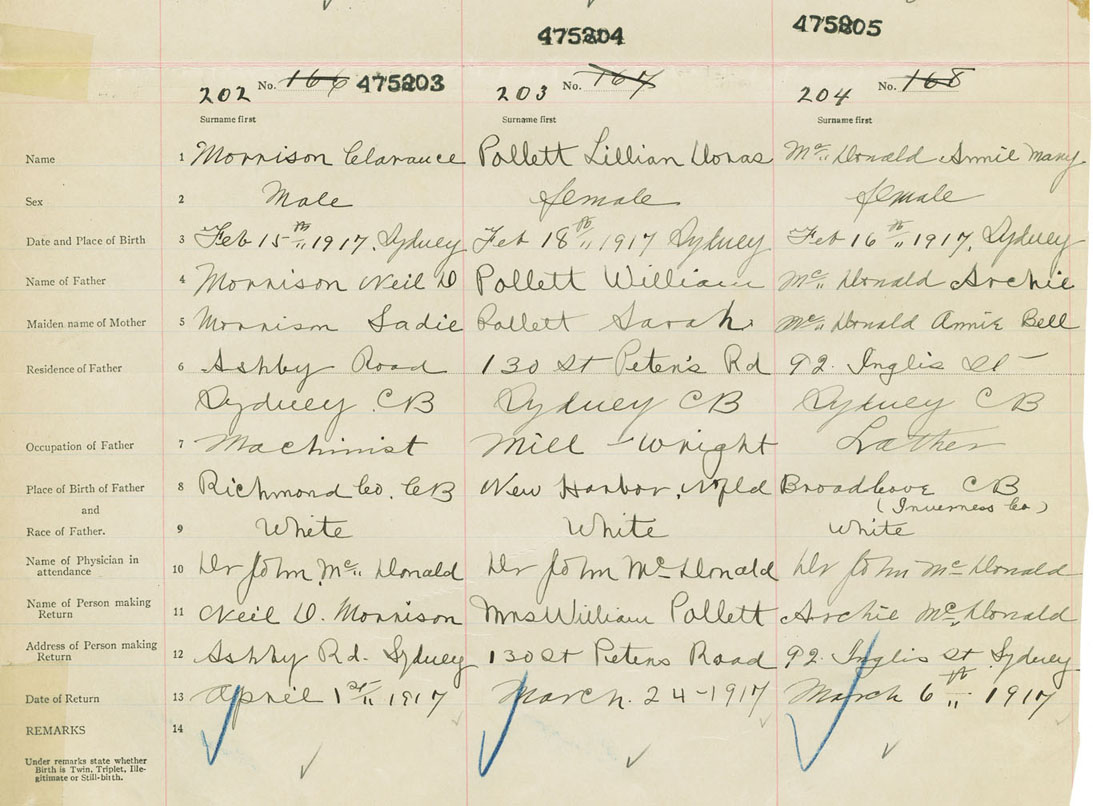 475204 475205
202 No. 166 475203 203 No. 167 204 No. 168
Surname first Surname first Surname first
Name 1 Morrison Clarance Pollett Lillian Mc Donald Annie Mary
Sex 2 Male female female
Date and Place of Birth 3 Feb 15th 1917, Sydney Feb 18th 1917 Sydney Feb 16th 1917, Sydney
Name of Father 4 Morrison Neil D Pollett William Mc Donald Archie
Maiden name of Mother 5 Morrison Sadie Pollett Sarah Mc Donald Annie Bell
Residence of Father 6 Ashby Road 130 St Peter's Rd 92. Inglis St
Sydney CB Sydney CB Sydney CB
Occupation of Father 7 Machinist Mill-wright Lather
Place of Birth of Father 8 Richmond Co. CB New Harbor, Nfld Broad Cove CB
and (Inverness Co)
Race of Father. 9 White White White
Name of Physician in
attendance 10 Dr John Mc Donald Dr John Mc Donald Dr John Mc Donald
Name of Person making
Return 11 Neil D. Morrison Mrs William Pollett Archie Mc Donald
Address of Person making
Return 12 Ashby Rd. Sydney 130 St Peters Road 92 Inglis St Sydney
Date of Return 13 April 1st 1917 March. 24-1917 March 6th 1917
REMARKS 14
Under remarks state whether
Birth is Twin, Triplet, Ille-
gitimate or Still-birth.